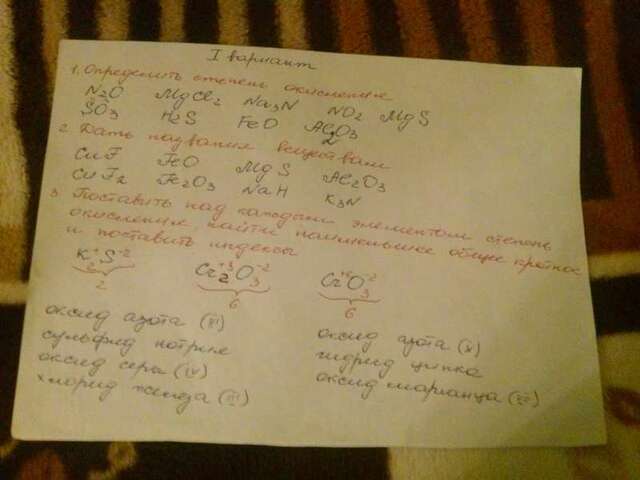 I вариант
1. Определить степень окисления
N2O MgCl2 Na3N NO2 MgS
SO3 H2S FeO Al2O3
2. Дать названия веществам
CuF FeO MgS Al2O3
CuF2 Fe2O3 NaH K3N
3. Поставить над каждым элементом степень
окисления, найти наименьшее общее кратное
и поставить индексы
K+ S-2 Cr2+3 O3-2 Cr+6 O3-2
2 6 6
оксид азота (III) оксид азота (V)
сульфид натрия гидрид цинка
оксид серы (IV) оксид марганца (VII)
хлорид железа (III)